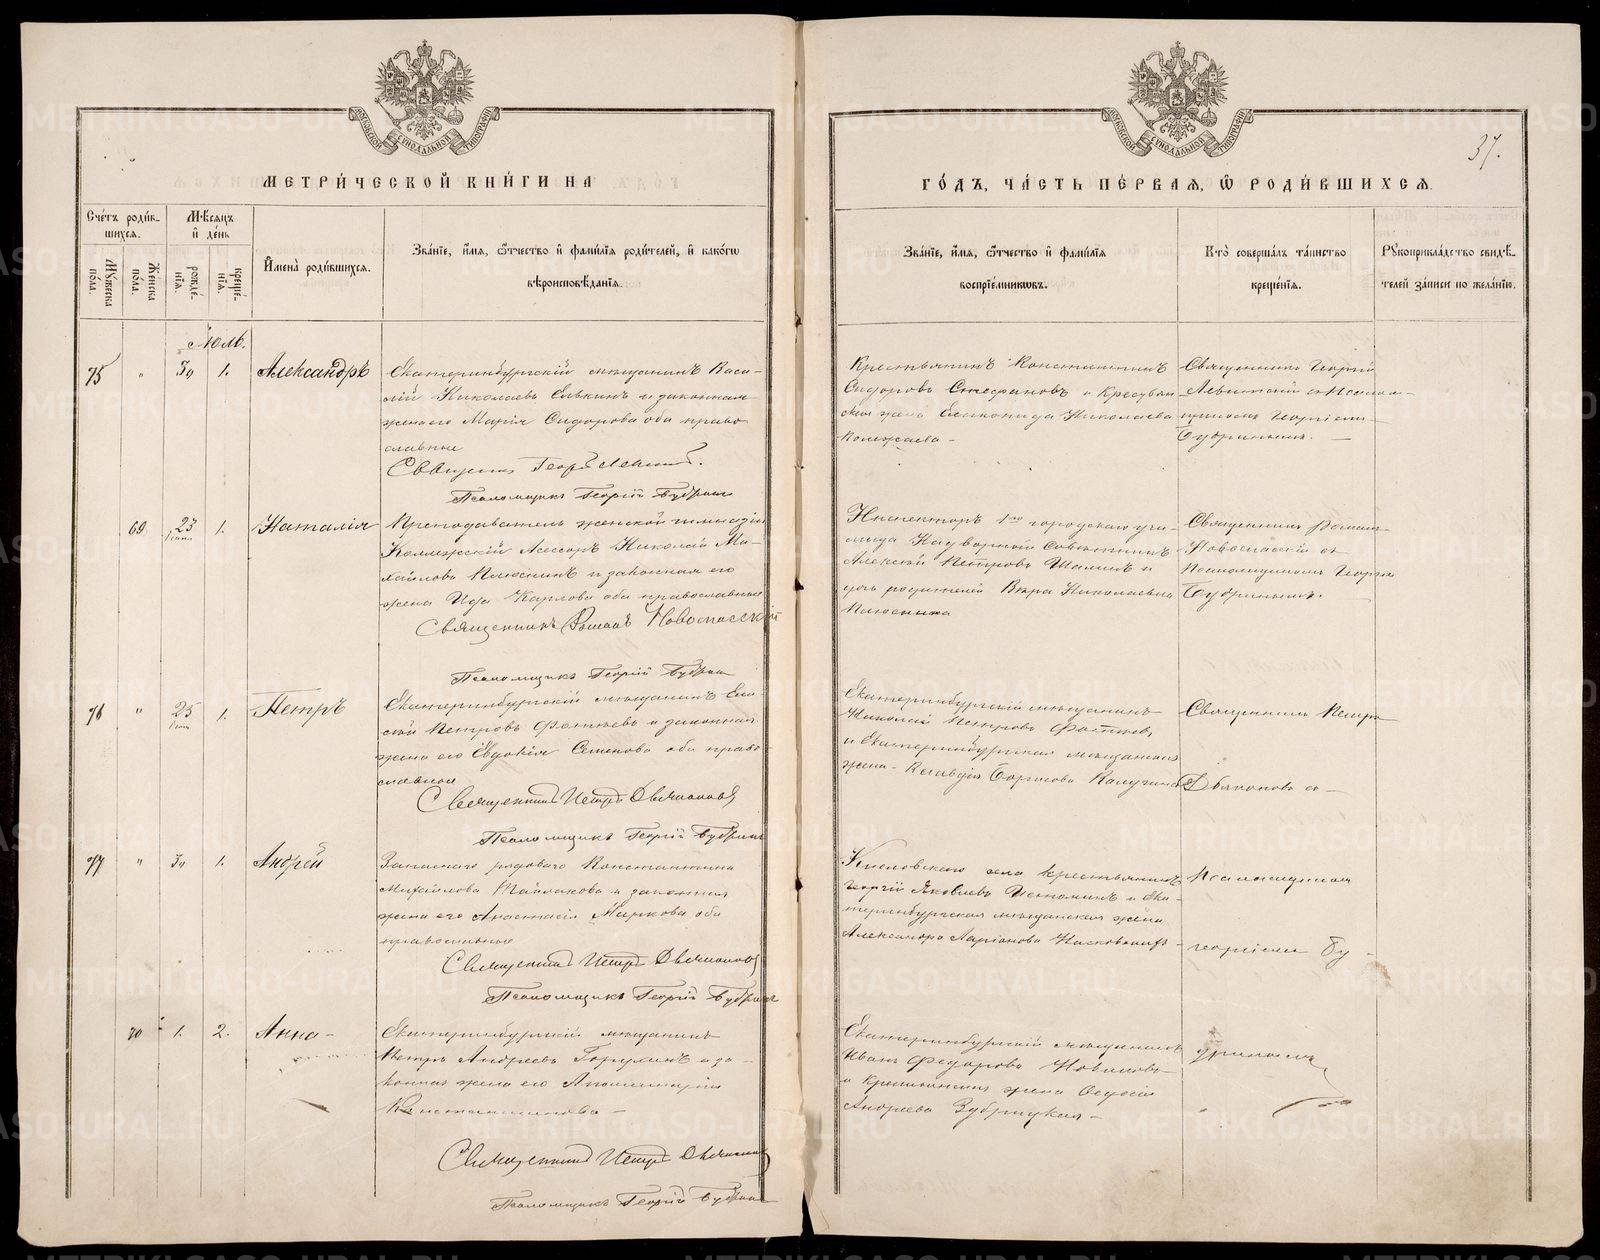 37.
МЕТРИ́ЧЕСКОЙ КНИ́ГИ НА
ГО́ДЪ, ЧА́СТЬ ПЕ́РВАЯ, Ѡ҆ РОДИ́ВШИХСЯ.
МОСКОВСКОЙ СѴНОДАЛЬНОЙ ТИПОГРАФІИ
МОСКОВСКОЙ СѴНОДАЛЬНОЙ ТИПОГРАФІИ
Сче́тъ роди́в-
шихся.
Мѣ́сяцъ
и҆ де́нь
Му́жеска
по́ла.
Же́нска
по́ла.
рожде́-
нїя.
креще́-
нїя.
И҆мена̀ роди́вшихся.
Зва́нїе, и҆́мя, ѻ҆́тчество и҆ фами́лїя роди́телей, и҆ како́гѡ
вѣроисповѣ́данїя.
Зва́нїе, и҆́мя, ѻ҆́тчество и҆ фами́лїя
воспрїе́мникѡвъ.
Кто̀ соверша́лъ та́инство
креще́нїя.
Рꙋкоприкла́дство свидѣ́-
телей за́писи по жела́нїю.
Іюль.
75 " 30 1. Александръ
Екатеринбургскій мѣщанинъ Васи-
лій Николаевъ и законная
жена его Марія Сидорова оба право-
славные
Священникъ Георгій Левитскій.
Псаломщикъ Георгій Бубринъ
Крестьянинъ Константинъ
Сидоровъ Стефановъ и крестьян-
ская жена Николаева
Священникъ Георгій
Левитскій съ Псалом-
щикомъ Георгіемъ
Бубринымъ. —
69 23 іюня 1. Наталія
Преподаватель женской гимназіи
Коллежскій Ассесоръ Николай Ми-
хайловъ Плюснинъ и законная его
жена Ида Карлова оба православные
Священникъ Романъ Новоспасскій
Псаломщикъ Георгій Бубринъ
Инспекторъ 1го городскаго учи-
лища Надворный Совѣтникъ
Алексѣй Петровъ Шалинъ и
дочь родителей Вѣра Николаевна
Плюснина
Священникъ Романъ
Новоспасскій съ
Псаломщикомъ Георгіемъ
Бубринымъ.
76 " 25 іюня 1. Петръ
Екатеринбургскій мѣщанинъ
Петровъ Фотіевъ и законная
жена его Евдокія Семенова оба право-
славные
Священникъ Петръ
Псаломщикъ Георгій Бубринъ
Екатеринбургскій мѣщанинъ
Николай Петровъ Фотіевъ
и Екатеринбургская мѣщанская
жена Клавдія Борисова
Священникъ Петръ
77 " 30 1. Андрей
Запаснаго рядового Константина
Михайлова и законная
жена его Анастасія Маркова оба
православные
Священникъ Петръ
Псаломщикъ Георгій Бубринъ
села крестьянинъ
Георгій Яковлевъ и Ека-
теринбургская мѣщанская жена
Александра Ларіонова
Псаломщикомъ
Георгіемъ Бу-
бринымъ
70 1. 2. Анна —
Екатеринбургскій мѣщанинъ
Петръ Андреевъ и за-
конная жена его Апполинарія
Константинова —
Священникъ Петръ
Псаломщикъ Георгій Бубринъ
Екатеринбургскій мѣщанинъ
Иванъ Федоровъ Новиковъ
и Крестьянская жена
Андреева Зубрицкая —
METRIKI.GASO-URAL.RU